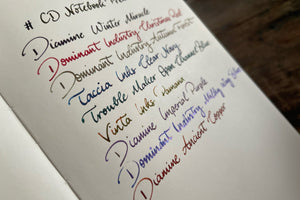 # CD Notebook
Diamine Winter Miracle
Dominant Industry Christmas Red
Dominant Industry Autumn Forest
Taccia Inks Clear Navy
Trouble Maker Open Channel Blue
Vinta Inks
Diamine Imperial Purple
Dominant Industry Milky way
Diamine Ancient Copper